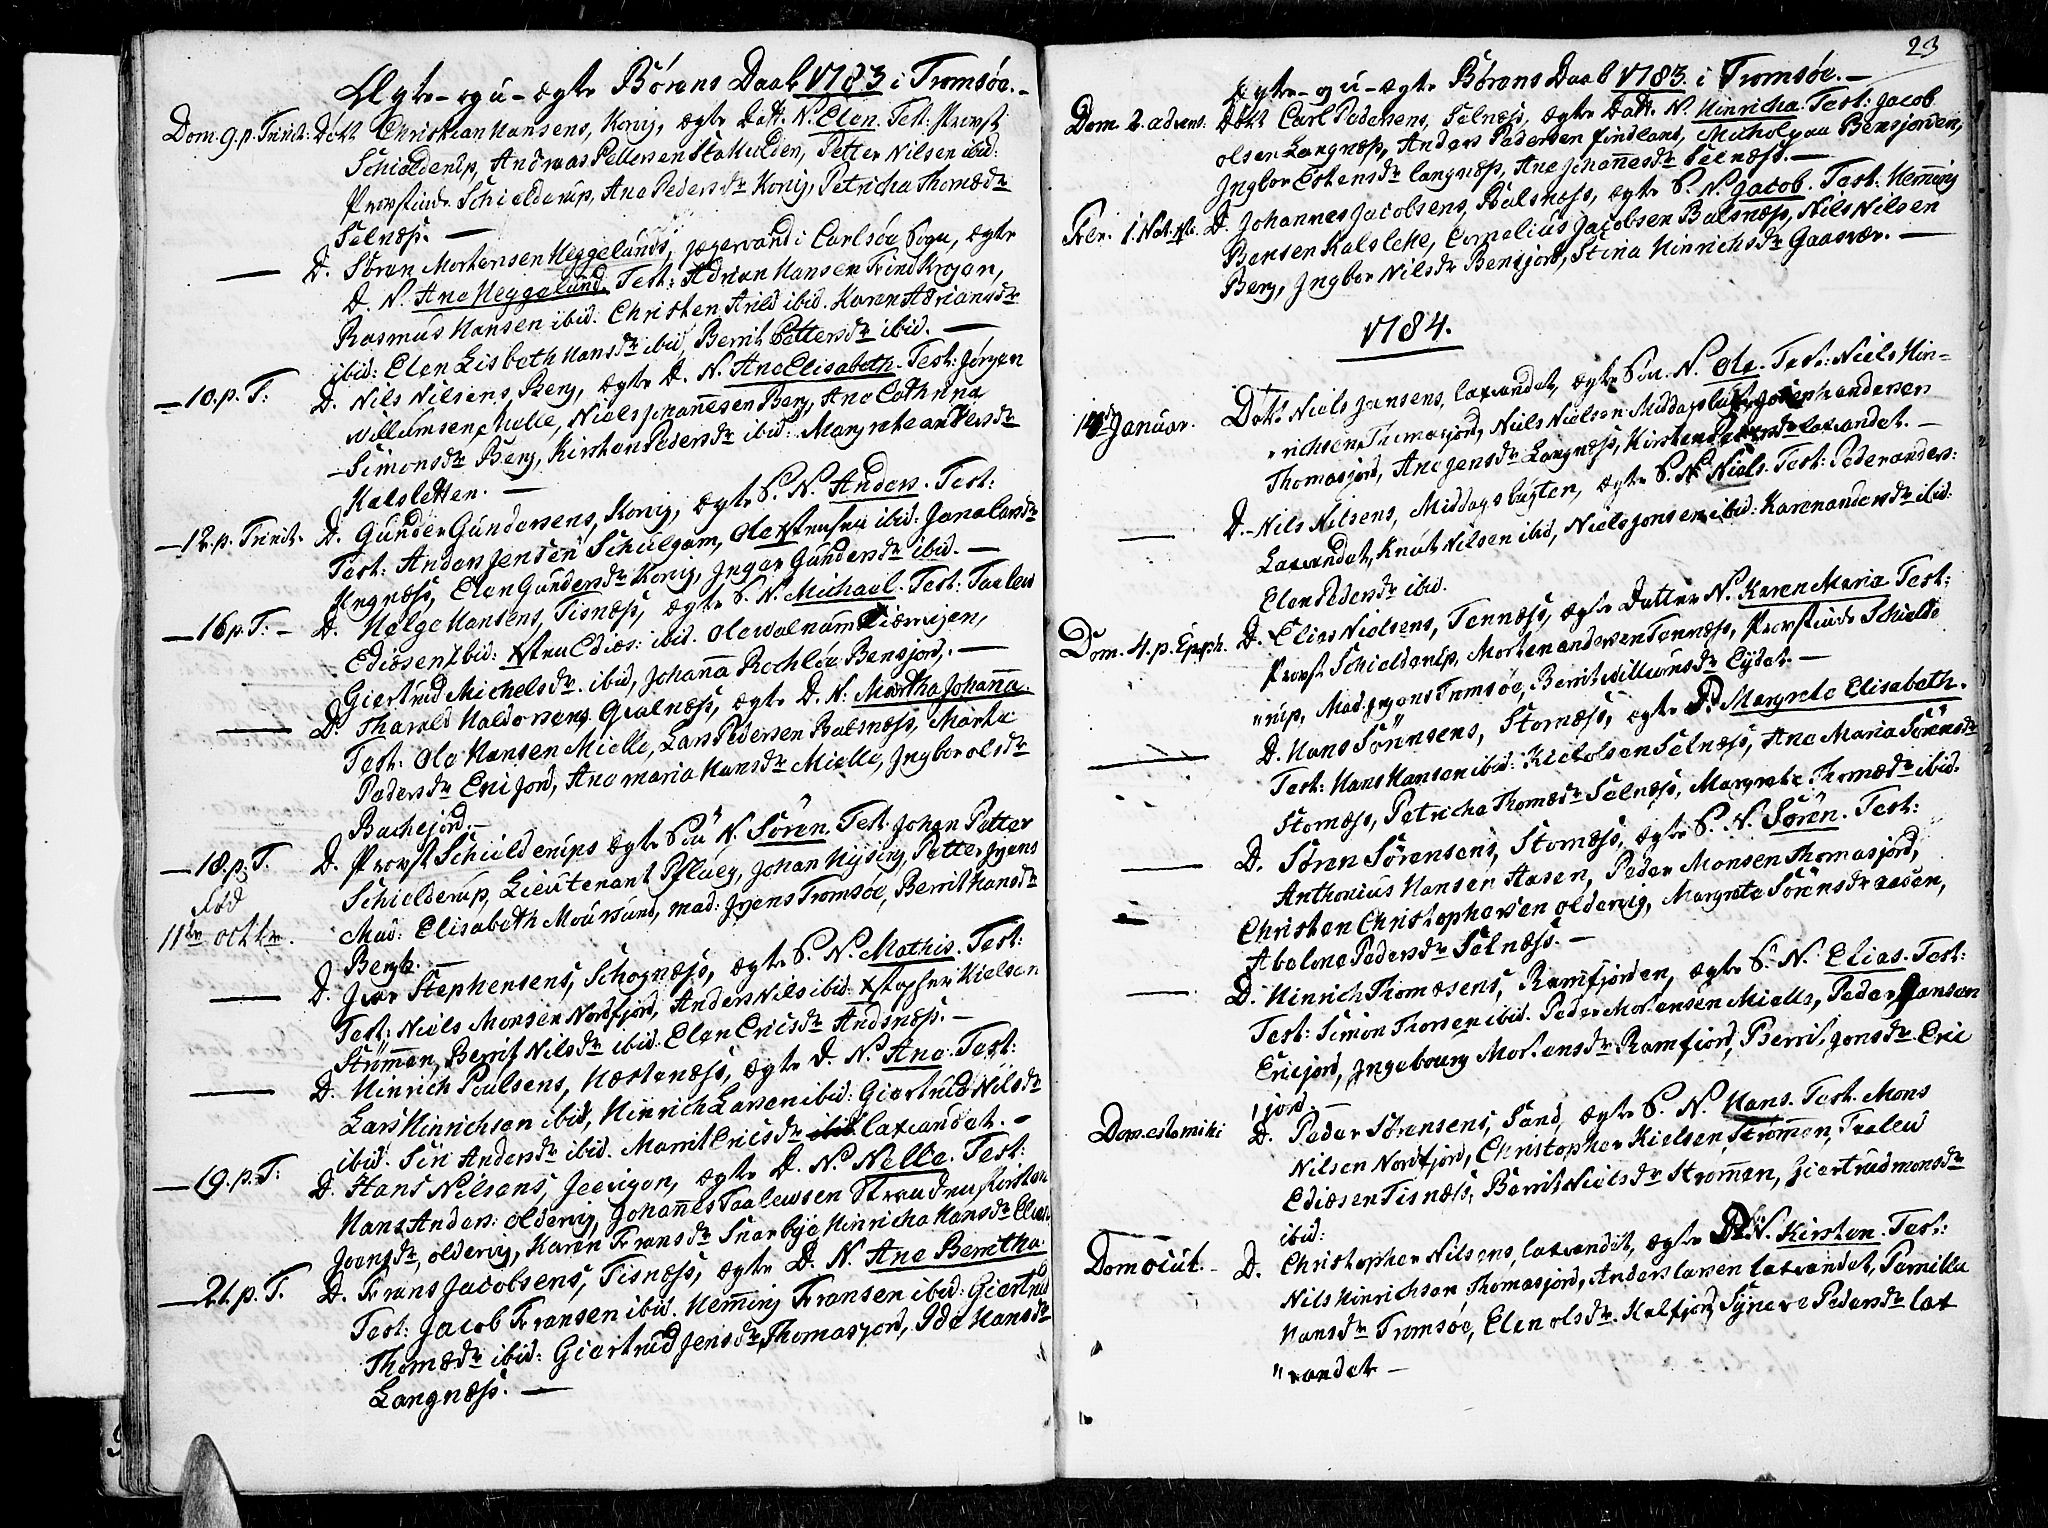 Ægte- og u-ægte Børens Daab 1783 i Tromsöe.-
Dom. 9. p. Trinit: Døbt Christian Hansens, Konig, ægte Datt: N. Elen. Test: Provst
Schielderup, Andreas Pettersen Stakulden, Petter Nilsen ibid:
Provstinde Schielderup, Ana Pedersdr Konig, Petricha Thomædr
Selnæss.
D. Søren Mortensen Heggelunds, Jægervand i Carlsöe Sogn, ægte
D. N. Ane Heggelund. Test: Adrian Hansen Finkrogen,
Rasmus Hansen ibid. Christen Arild ibid. Karen Adriansdr
ibid: Elen Lisbeth Hansdr ibid, Berrit Pettersdr ibid.
10. p. T: D. Nils Nilsens, Berg, ægte D. N. Ane Elisabeth. Test: Jörgen
Willumsen Mielle, Niels Johannesen Berg, Ane Cathrina
Simonsdr Berg, Kirsten Pedersdr ibid: Margrete andersdr
Kalsletten.
12. p. Trinit. D. Gunder Gundersens, Konig, ægte S. N. Anders. Test:
Test: Anders Jensen Schulgam, Ole ibid:
Ungnæss, Elen Gundersdr Konig, Inger Gundersdr ibid.
16 p. T: D. Helge Hansens, Tisnæss, ægte S. N. Michael. Test: Taalew
Ediasen ibid: Edias: ibid. Ole
Giertrud Michelsdr. ibid, Johanna Bensjord.
D. Tharald Haldorsens, Gvalnæss, ægte D. N. Martha Johanna
Test: Ole Hansen Mielle, Lars Pedersen Balsnæss, Marta
Pedersdr Erijord, Ane maria Hansdr Mielle, Ingbor olsdr
Bachejord.
18. p. T. D. Provst Schielderups ægte Sön N. Sören. Test. Johan Petter
Fød Schielderup, Lieutenant Pflueg, Johan Hysing, Petter Jrgens
11te octbr. Mad: Elisabeth Moursund, mad: Jrgens Tromsöe, Berrit Hansdr
Berg.
D. Iver Stephensens, Schognæss, ægte S. N. Mathis. Test:
Test: Niels Monsen Nordfjord, Anders Nils ibid: Xstopher Kielsen
Strømmen, Berrit Nilsdr ibid. Elen Ericsdr Andsnæss.
D. Hinrich Poulsens, Hæstenæss, ægte D. N. Ane. Test:
Lars Hinrichsen ibid, Hinrich Larsen ibid: Giertrud Nilsdr
ibid. Siri Andersdr ibid. Marrit Ericsdr Laxvandet.
19. p. T: D. Hans Nilsens, ægte D. N. Nelle. Test:
Hans Anders: oldervig, Johannes Taalewsen
Joensdr, oldervig, Karen Fransdr Snarbye Hinricha Hansdr
21. p. T. D. Frans Jacobsens, Tisnæss, ægte D. N. Ane Beritha.
Test: Jacob Fransen ibid. Hemming Fransen ibid: Giertrud
Thomædr ibid: Giertrud Jensdr Thomasjord, Ide Hansdr
Langnæss.
23
Ægte- og u-ægte Børens Daab 1783. i Tromsöe.-
Dom. 2. advent. Døbt Carl Pedersens, Selnæss, ægte Datt. N. Hinricha. Test: Jacob
olsen Langnæss, Anders Pedersen Findland, Bensjorden,
Ingbor Estensdr langnæss, Ane Johannesdr Selnæss.
D. Johannes Jacobsens, Balsnæss, ægte S. N. Jacob. Test: Hemming
Bensen Kalslette, Cornelius Jacobsen Balsnæss, Nils Nilsen
Berg, Ingbor Nilsdr Bensjord, Stina Hinrichsdr Gaasvær.
1784.
Januar. Døbt Niels Jensens, laxvandet, ægte Sön. N. Ole. Test: Niels Hin-
richsen Thomasjord, Niels Nielsen Middagsbugt, Joseph andersen
Thomasjord, Ane Jensdr Langnæss, Kirsten laxvandet.
D. Nils Nilsens, Middagsbugten, ægte S. N. Niels. Test: Peder anders:
Laxvandet, Knut Nilsen ibid, Niels Jonsen ibid: Karen andersdr ibid:
Elen Pedersdr ibid.
Dom. 4. p. Epiph. D. Elias Nielsens, Tennæss, ægte Datter N. Karen Maria Test:
Provst Schielderup, Morten andersen Tennæss, Provstinde Schielde
"rup, Mad. Jrgens Tromsöe, Berrit Willumsdr Eydet.
D. Hans Sörensens, Stornæss, ægte D. Margrete Elisabeth.
Test: Hans Hansen ibid: Kiel olsen Selnæss, Ane Maria Sörensdr
Stornæss, Petricha Thomædr Selnæss, Margrete Thomædr ibid.
D. Sören Sörensens, Stornæss, ægte S. N. Sören. Test:
Anthonius Hansen Aasen, Peder Monsen Thomasjord,
Christen Christophersen oldervig, Margrete Sörensdr
Abelone Pedersdr Selnæss.
D. Hinrich Thomæsens, Ramfjorden, ægte S. N. Elias. Test:
Test: Simon Thorsen ibid. Peder Mortensen Mielle, Peder Hansen
Ericjord, Ingebourg Mortensdr Ramfiord, Berrit Jonsdr. Eric
jord.
Dom. estomihi D. Peder Sörensens, Sand, ægte S. N. Hans. Test. Mons
Nilsen Nordfjord, Christopher Kielsen Strømmen, Taalew
Ediæsen Tisnæss, Berrit Nielsdr Strømmen, Giertrud monsdr
ibid:
Dom ocul. D. Christopher Nilsens, laxvandet, ægte D. N. Kirsten. Test:
Nils Hinrichsen Thomasjord, Anders larsen laxvandet, Pernilla
Hansdr Tromsöe, Elen olsdr. Kalfjord, Synneve Pedersdr lax
"vandet